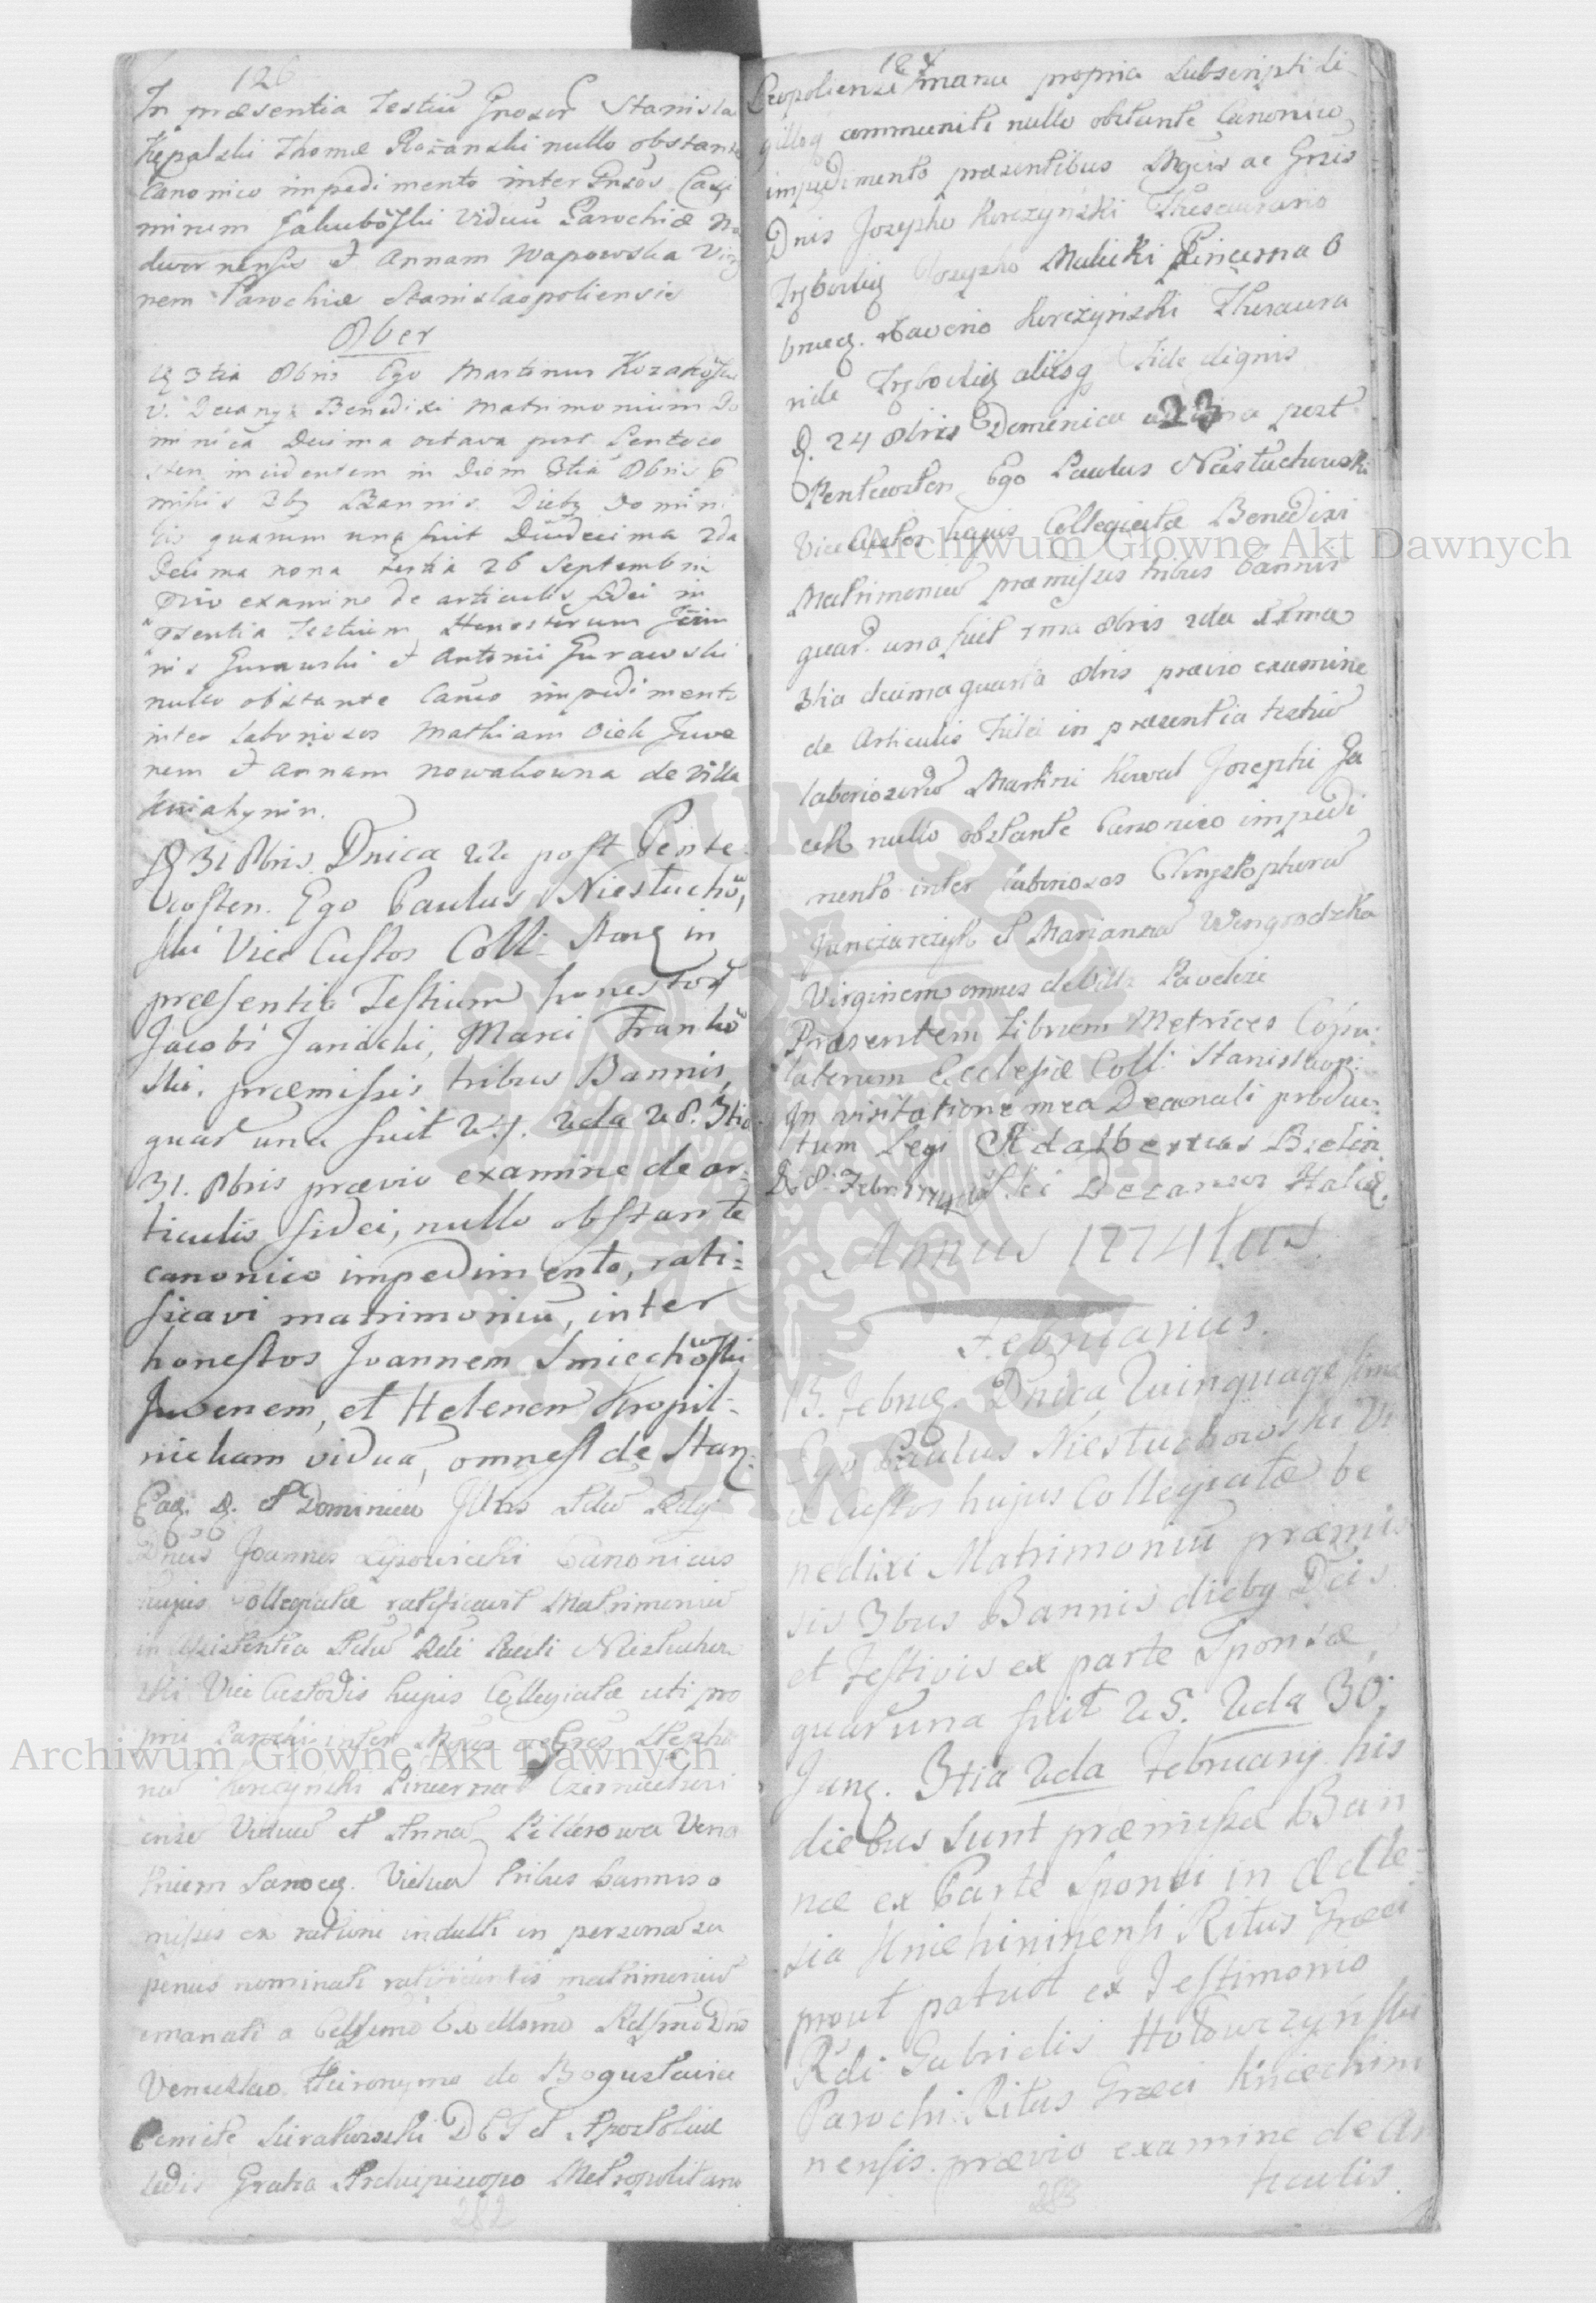 126
In præsentia Testiū Gnosor Stanisla
Kepalski Thomæ Rożanski nullo obstante
Canonico impedimento inter Gnsos Casi
mirum Jakubowski Viduū Parochiæ Na
dwornensis et Annam Wapowska Virgi
nem Parochiæ Stanislaopoliensis
8ber
3tia 8bris Ego Martinus Kozakowski
V. Decanq Benedixi Matrimonium Do
minica Decima octava post Penteco
sten incidentem in Diem 3tia 8bris
missis 3bq Bannis Diebq Domini
quarum una fuit Duodecima 2da
Decima nona tertia 26 Septembris
prævio examine de articulis fidei in
præsentia Testium Honestorum
nis Gurawski et Antonii Gurawski
nullo obstante Canco impedimento
inter laboriosos Mathiam Oick Juve
nem et Annam Nowakowna de Villa
Kniahynin.
D 31 8bris. Dnica 22 post Pente
costen. Ego Paulus Niestuchow,
ski Vice Custos Coll: Stanq in
præsentia Testium honestorū
Jacobi Janicki, Marci Frankow
ski. præmissis tribus Bannis,
quarū una fuit 24. 2da 28. 3tia
31. 8bris prævio examine de ar-
ticulis fidei, nullo obstante
canonico impedimento, rati=
ficavi matrimoniū, inter
honestos Joannem Smiechowski
Juvenem, et Helenem Kropil-
nickam viduā, omnes de Stan:
Eaq. D. et Dominica
Dnus Joannes Lipowiecki Canonicus
hujus Collegiatæ ratificavit Matrimoniū
in assistentia Pauli Niestuchow
ski Vice Custodis hujus Collegiatæ uti pro
prii Parochi inter Stepha
nū Korczynski Pincerna Czerniechovi
ense Viduū et Annā Pillerowa Vena
tricem Sanocq. Viduā tribus bannis o
missis ex ratione indulti in personā su
perius nominati ratificantis matrimoniū
emanati a Celsimo Excellmo Rdssmo Dno
Venceslao Hieronymo de Bogusławice
Comite Sierakowski D G et Apostolicæ
Sedis Gratia Archiepiscopo Metropolitano
282
127
Leopoliensi manu propria Subscripti si
gilloq communiti nullo obstante Canonico
impedimento præsentibus Mgcis ac Gnsis
Dnis Josepho Korczynski Thesaurario
Trębovliq Malicki Pincerna O
Xaverio Korczynski Thesaura
ride Trębovliq aliisq fide dignis
D. 24 8bris Dominica 23 post
Pentecosten Ego Paulus Niestuchowski
ViceCustos hujus Collegiatæ Benedixi
Matrimoniū præmissis tribus bannis
quarū una fuit 8bris 2da
3tia decima quarta 8bris prævio examine
de Articulis Fidei in præsentia testiū
laboriosorū Martini Kowal Josephi Ga
cek nullo obstante Canonico impedi
mento inter laboriosos Chrysztophorū
Janczarczyk et Mariannā Wengrodzka
Virginem omnes de Villa Pavelcze
Præsentem Librum Metrices Copu:
latorum Ecclesiæ Coll: Stanislaop:
In visitatione mea Decanali produc-
tum Legi Adalbertus Bielin
D. 8. Febr. 1774 ski Decanus Halic.
Annus 1774tus
Februarius.
13. Februq. Dnica Quinquagesima
Ego Paulus Niestuchowski Vi
ce Custos hujus Collegiatæ be
nedixi Matrimoniū præmis
sis 3bus Bannis diebq Dcis
et Festivis ex parte Sponsæ,
quarū una fuit 25. 2da 30.
Janq. 3tia 2da Februarij. his
diebus sunt præmissa Ban
næ ex Parte Sponsi in Eccle=
sia Kniehininensi Ritus Græci
prout patuit ex Testimonio
Rdi Gabrielis Hołowczyński
Parochi Ritus Græci Kniechini
nensis. prævio examine de Ar
ticulis.
283
Archiwum Główne Akt Dawnych
Archiwum Główne Akt Dawnych
ARCHIWUM GŁÓWNE AKT DAWNYCH